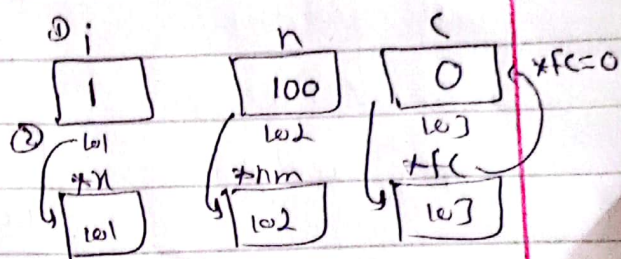 ① i n c
1 100 0 *fc=0
② 101 102 103
*x *nm *fc
101 102 103